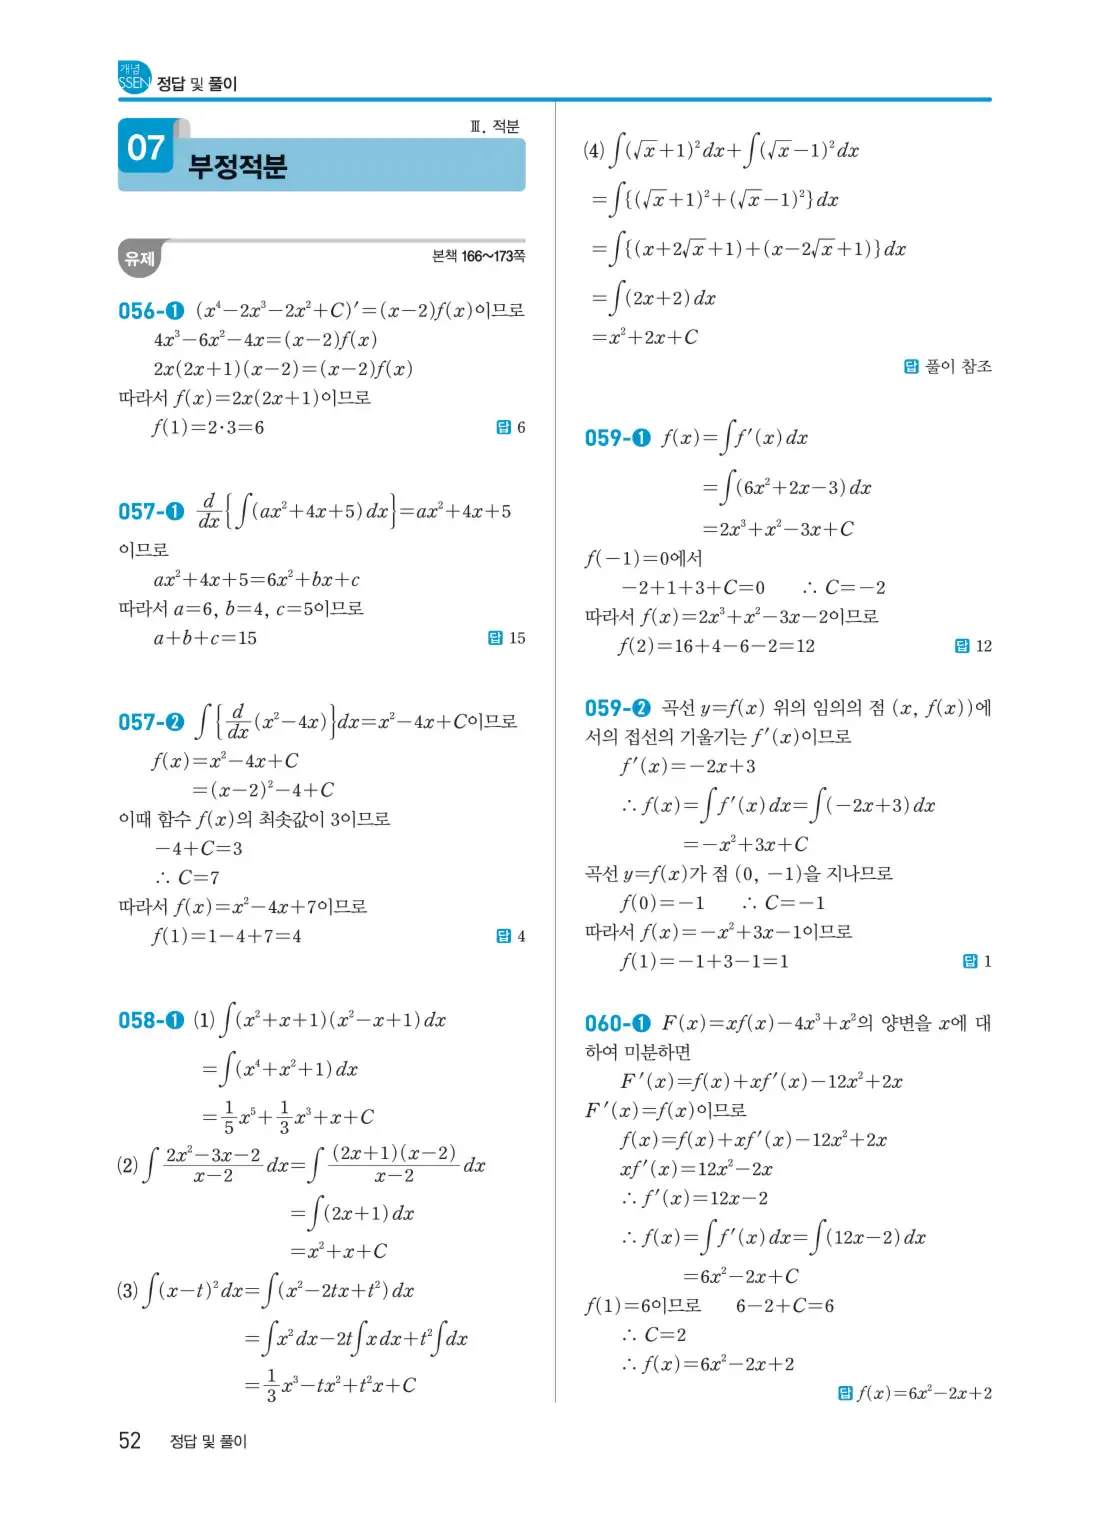 개념
SSEN 정답 및 풀이
Ⅲ. 적분
07 부정적분
유제 본책 166~173쪽
056-❶ (x⁴−2x³−2x²+C)′=(x−2)f(x)이므로
4x³−6x²−4x=(x−2)f(x)
2x(2x+1)(x−2)=(x−2)f(x)
따라서 f(x)=2x(2x+1)이므로
f(1)=2·3=6 답 6
057-❶ d/dx{∫(ax²+4x+5)dx}=ax²+4x+5
이므로
ax²+4x+5=6x²+bx+c
따라서 a=6, b=4, c=5이므로
a+b+c=15 답 15
057-❷ ∫{d/dx(x²−4x)}dx=x²−4x+C이므로
f(x)=x²−4x+C
=(x−2)²−4+C
이때 함수 f(x)의 최솟값이 3이므로
−4+C=3
∴ C=7
따라서 f(x)=x²−4x+7이므로
f(1)=1−4+7=4 답 4
058-❶ (1) ∫(x²+x+1)(x²−x+1)dx
=∫(x⁴+x²+1)dx
=1/5x⁵+1/3x³+x+C
(2) ∫(2x²−3x−2)/(x−2)dx=∫(2x+1)(x−2)/(x−2)dx
=∫(2x+1)dx
=x²+x+C
(3) ∫(x−t)²dx=∫(x²−2tx+t²)dx
=∫x²dx−2t∫xdx+t²∫dx
=1/3x³−tx²+t²x+C
(4) ∫(√x+1)²dx+∫(√x−1)²dx
=∫{(√x+1)²+(√x−1)²}dx
=∫{(x+2√x+1)+(x−2√x+1)}dx
=∫(2x+2)dx
=x²+2x+C
답 풀이 참조
059-❶ f(x)=∫f′(x)dx
=∫(6x²+2x−3)dx
=2x³+x²−3x+C
f(−1)=0에서
−2+1+3+C=0 ∴ C=−2
따라서 f(x)=2x³+x²−3x−2이므로
f(2)=16+4−6−2=12 답 12
059-❷ 곡선 y=f(x) 위의 임의의 점 (x, f(x))에
서의 접선의 기울기는 f′(x)이므로
f′(x)=−2x+3
∴ f(x)=∫f′(x)dx=∫(−2x+3)dx
=−x²+3x+C
곡선 y=f(x)가 점 (0, −1)을 지나므로
f(0)=−1 ∴ C=−1
따라서 f(x)=−x²+3x−1이므로
f(1)=−1+3−1=1 답 1
060-❶ F(x)=xf(x)−4x³+x²의 양변을 x에 대
하여 미분하면
F′(x)=f(x)+xf′(x)−12x²+2x
F′(x)=f(x)이므로
f(x)=f(x)+xf′(x)−12x²+2x
xf′(x)=12x²−2x
∴ f′(x)=12x−2
∴ f(x)=∫f′(x)dx=∫(12x−2)dx
=6x²−2x+C
f(1)=6이므로 6−2+C=6
∴ C=2
∴ f(x)=6x²−2x+2
답 f(x)=6x²−2x+2
52 정답 및 풀이